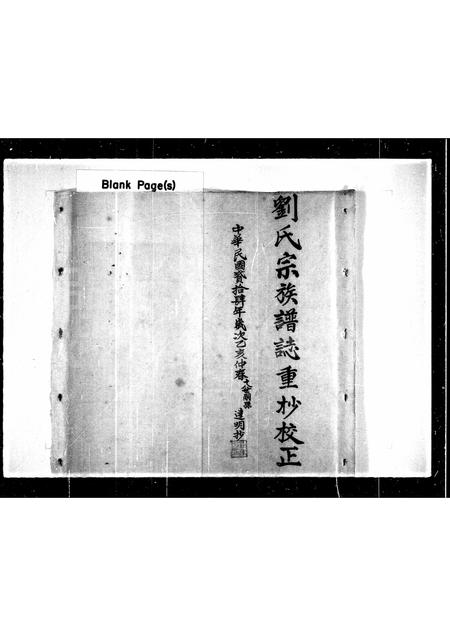 Blank Page(s)
劉氏宗族譜誌重抄校正
中華民國貳拾肆年歲次乙亥仲春嗣孫達明抄